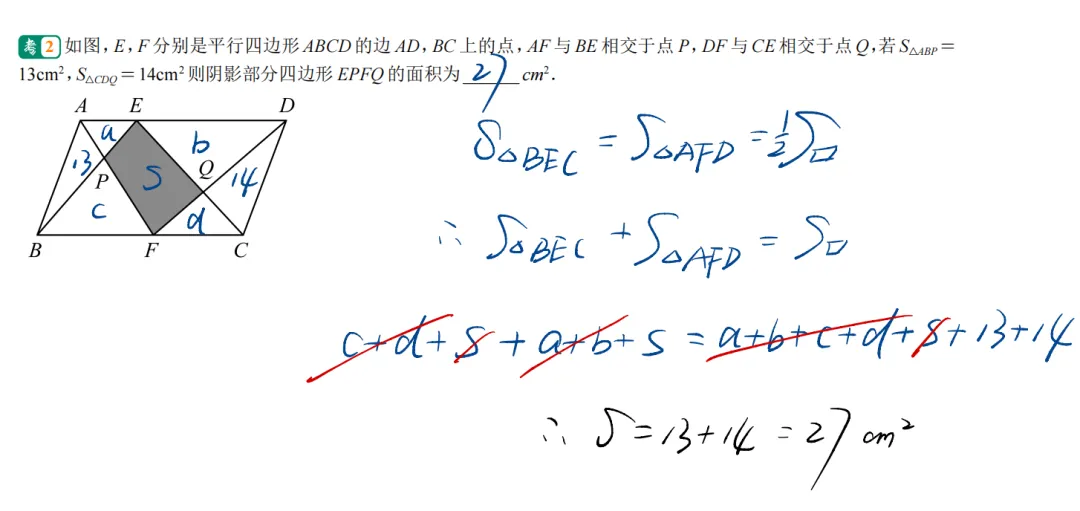 考2 如图,E,F分别是平行四边形ABCD的边AD,BC上的点,AF与BE相交于点P,DF与CE相交于点Q,若S△ABP=
13cm²,S△CDQ=14cm²则阴影部分四边形EPFQ的面积为 27 cm².
A E D
a b
13 P S Q 14
c d
B F C
S△BEC = S△AFD = ½S□
∴ S△BEC + S△AFD = S□
c+d+S+a+b+S=a+b+c+d+S+13+14
∴ S=13+14=27cm²